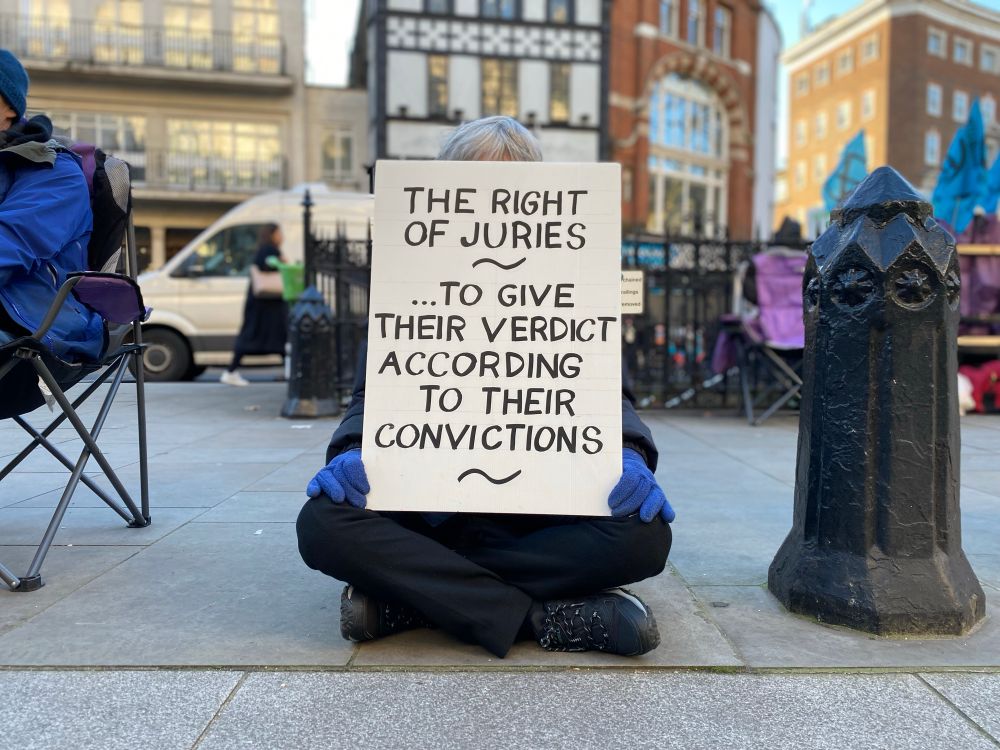 THE RIGHT
OF JURIES
~
...TO GIVE
THEIR VERDICT
ACCORDING
TO THEIR
CONVICTIONS
~
chained
railings
removed